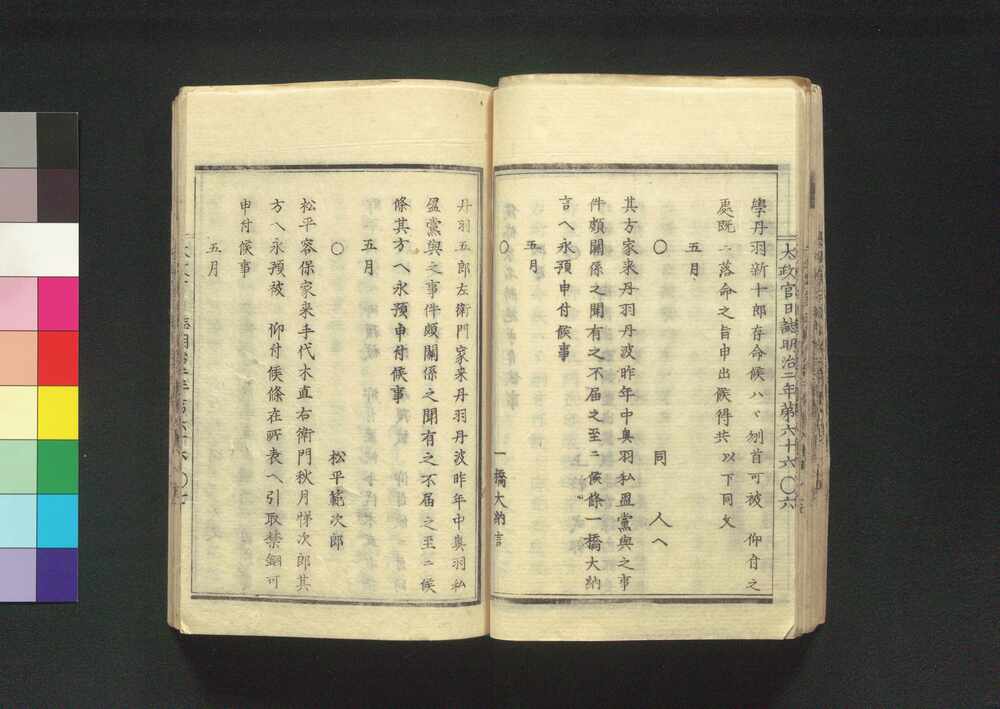 太政官日誌明治二年第六十六〇六
學丹羽新十郎存命候ハヽ刎首可被　仰付之
處既ニ落命之旨申出候得共以下同文
五月
〇　　同　人へ
其方家来丹羽丹波昨年中奥羽私盟黨與之事
件頗關係之聞有之不届之至ニ候條一橋大納
言へ永預申付候事
五月
〇　　一橋大納言
丹羽五郎左衛門家来丹羽丹波昨年中奥羽私
盟黨與之事件頗關係之聞有之不届之至ニ候
條其方へ永預申付候事
五月
〇　　松平範次郎
松平容保家来手代木直右衛門秋月悌次郎其
方へ永預被　仰付候條在所表へ引取禁錮可
申付候事
五月